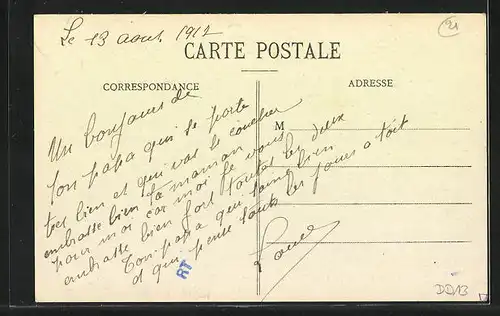 Le 13 aout 1912
21
CARTE POSTALE
CORRESPONDANCE
ADRESSE
M
Un bonjour de
ton papa qui se porte
tres bien et qui vas se coucher
embrasse bien ta maman
pour moi car moi je vous
embrasse bien fort toutes les deux
Ton papa qui taime bien
et qui pense tout les jours a toit
RT
DD13